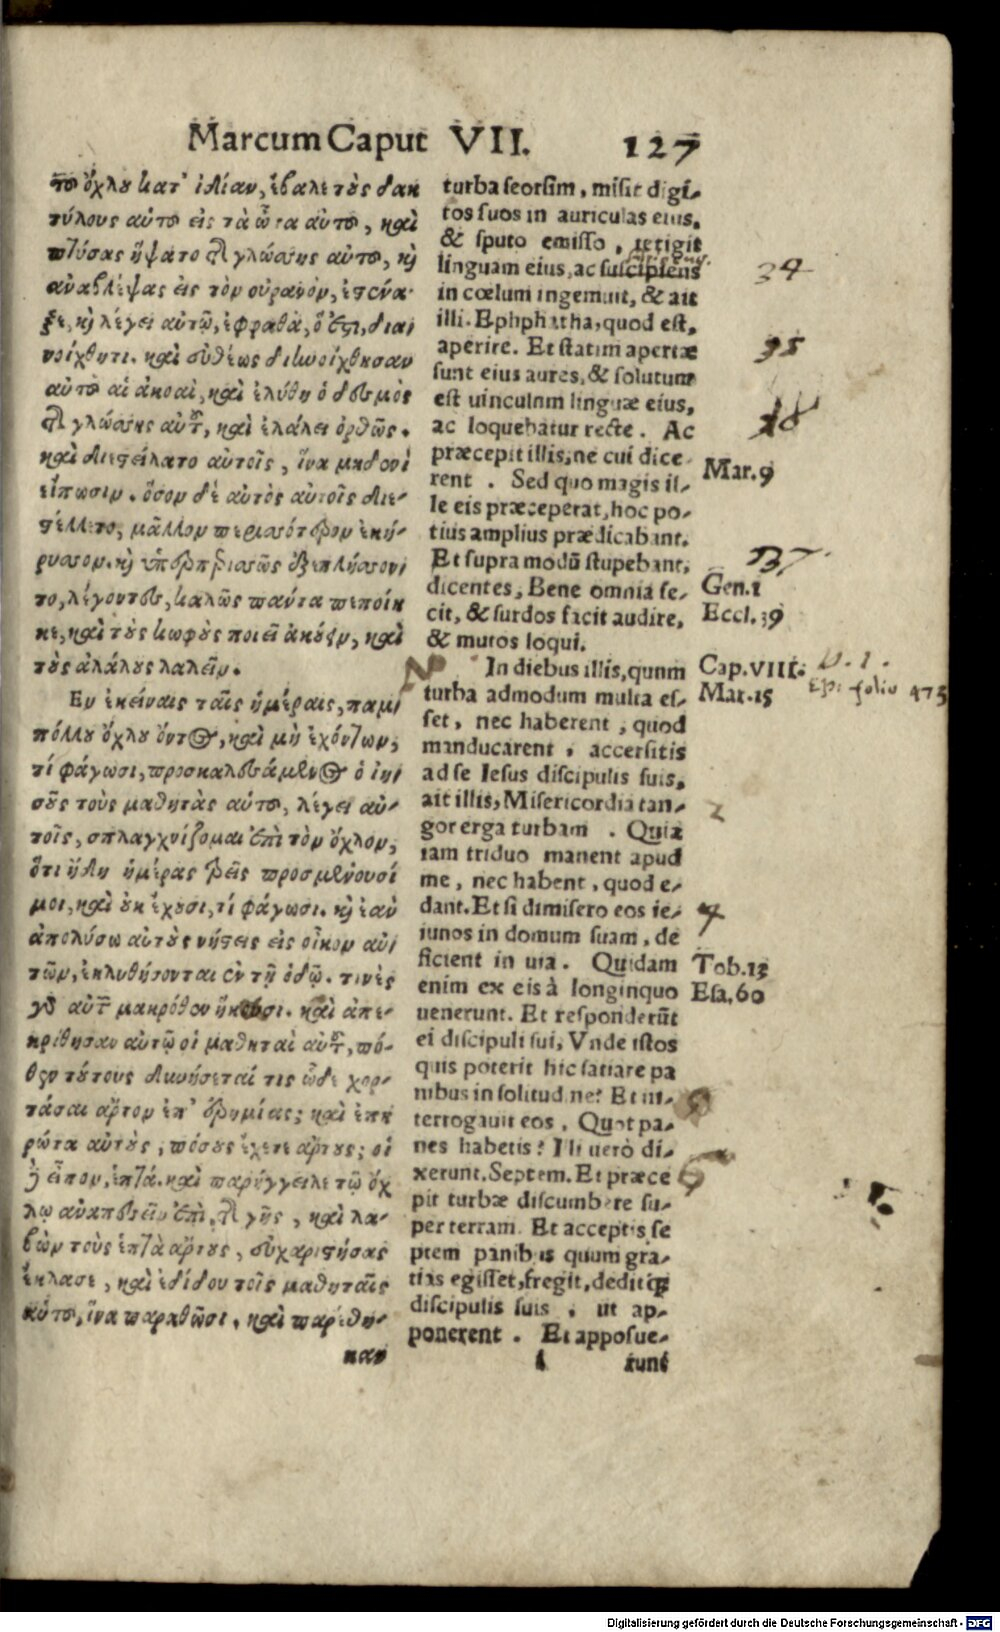 Marcum Caput VII. 127
τοῦ ὄχλου κατ' ἰδίαν, ἔβαλε τοὺς δακ
τύλους αὐτοῦ εἰς τὰ ὦτα αὐτοῦ, καὶ
πτύσας ἥψατο τῆς γλώσσης αὐτοῦ, κὶ
ἀναβλέψας εἰς τὸν οὐρανὸν, ἐστένα-
ξε, κὶ λέγει αὐτῷ, ἐφφαθὰ, ὅ ἐστι, διαι
νοίχθητι. καὶ εὐθέως διηνοίχθησαν
αὐτοῦ αἱ ἀκοαὶ, καὶ ἐλύθη ὁ δεσμὸς
τῆς γλώσσης αὐτοῦ, καὶ ἐλάλει ὀρθῶς.
καὶ διεστείλατο αὐτοῖς, ἵνα μηδενὶ
εἴπωσιν. ὅσον δὲ αὐτὸς αὐτοῖς διε-
στέλλετο, μᾶλλον περισσότερον ἐκή-
ρυσσον. κὶ ὑπερπερισσῶς ἐξεπλήσσονι
το, λέγοντες, καλῶς πάντα πεποίη
κε, καὶ τοὺς κωφοὺς ποιεῖ ἀκούειν, καὶ
τοὺς ἀλάλους λαλεῖν.
Εν ἐκείναις ταῖς ἡμέραις, παμι
πόλλου ὄχλου ὄντος, καὶ μὴ ἐχόντων,
τί φάγωσι, προσκαλεσάμενος ὁ ἰησι
σοῦς τοὺς μαθητὰς αὐτοῦ, λέγει αὐ-
τοῖς, σπλαγχνίζομαι ἐπὶ τὸν ὄχλον,
ὅτι ἤδη ἡμέρας τρεῖς προσμένουσί
μοι, καὶ οὐκ ἔχουσι, τί φάγωσι. κὶ ἐὰν
ἀπολύσω αὐτοὺς νήστεις εἰς οἶκον αὐι
τῶν, ἐκλυθήσονται ἐν τῇ ὁδῷ. τινὲς
γὸ αὐτῶν μακρόθεν ἥκουσι. καὶ ἀπε-
κρίθησαν αὐτῷ οἱ μαθηταὶ αὐτοῦ, πό-
θεν τούτους δυνήσεταί τις ὧδε χορ-
τάσαι ἄρτον ἐπ' ἐρημίας; καὶ ἐπη
ρώτα αὐτοὺς, πόσους ἔχετε ἄρτους; οἱ
δὲ εἶπον, ἑπτά. καὶ παρήγγειλε τῷ ὄχ
λῳ ἀναπεσεῖν ἐπὶ τῆς γῆς, καὶ λα-
βὼν τοὺς ἑπτὰ ἄρτους, εὐχαριστήσας
ἔκλασε, καὶ ἐδίδου τοῖς μαθηταῖς
αὐτοῦ, ἵνα παραθῶσι. καὶ παρέθη-
καν
turba seorsim, misit digi-
tos suos in auriculas eius,
& sputo emisso, tetigit
linguam eius, ac suscipiens
in cœlum ingemuit, & ait
illi. Ephphatha, quod est,
aperire. Et statim apertæ
sunt eius aures, & solutum
est uinculum linguæ eius,
ac loquebatur recte. Ac
præcepit illis, ne cui dice
rent. Sed quo magis il-
le eis præceperat, hoc po-
tius amplius prædicabant.
Et supra modū stupebant,
dicentes, Bene omnia fe-
cit, & surdos facit audire,
& mutos loqui.
In diebus illis, quum
turba admodum multa es-
set, nec haberent, quod
manducarent, accersitis
ad se Iesus discipulis suis,
ait illis, Misericordia tan-
gor erga turbam. Quia
iam triduo manent apud
me, nec habent, quod e-
dant. Et si dimisero eos ie-
iunos in domum suam, de
ficient in uia. Quidam
enim ex eis à longinquo
uenerunt. Et responderūt
ei discipuli sui, Vnde istos
quis poterit hic satiare pa
nibus in solitudine? Et in-
terrogauit eos, Quot pa-
nes habetis? Illi uerò di-
xerunt. Septem. Et præce
pit turbæ discumbere su-
per terram. Et acceptis se
ptem panibus quum gra-
tias egisset, fregit, deditq;
discipulis suis, ut ap-
ponerent. Et apposue-
i runt
34
35
Mar. 9
37
Gen. 1
Eccl. 39
Cap. VIII.
Mar. 15
v. 1.
Epi folio 473
2
Tob. 13
Esa. 60
6
Digitalisierung gefördert durch die Deutsche Forschungsgemeinschaft - DFG